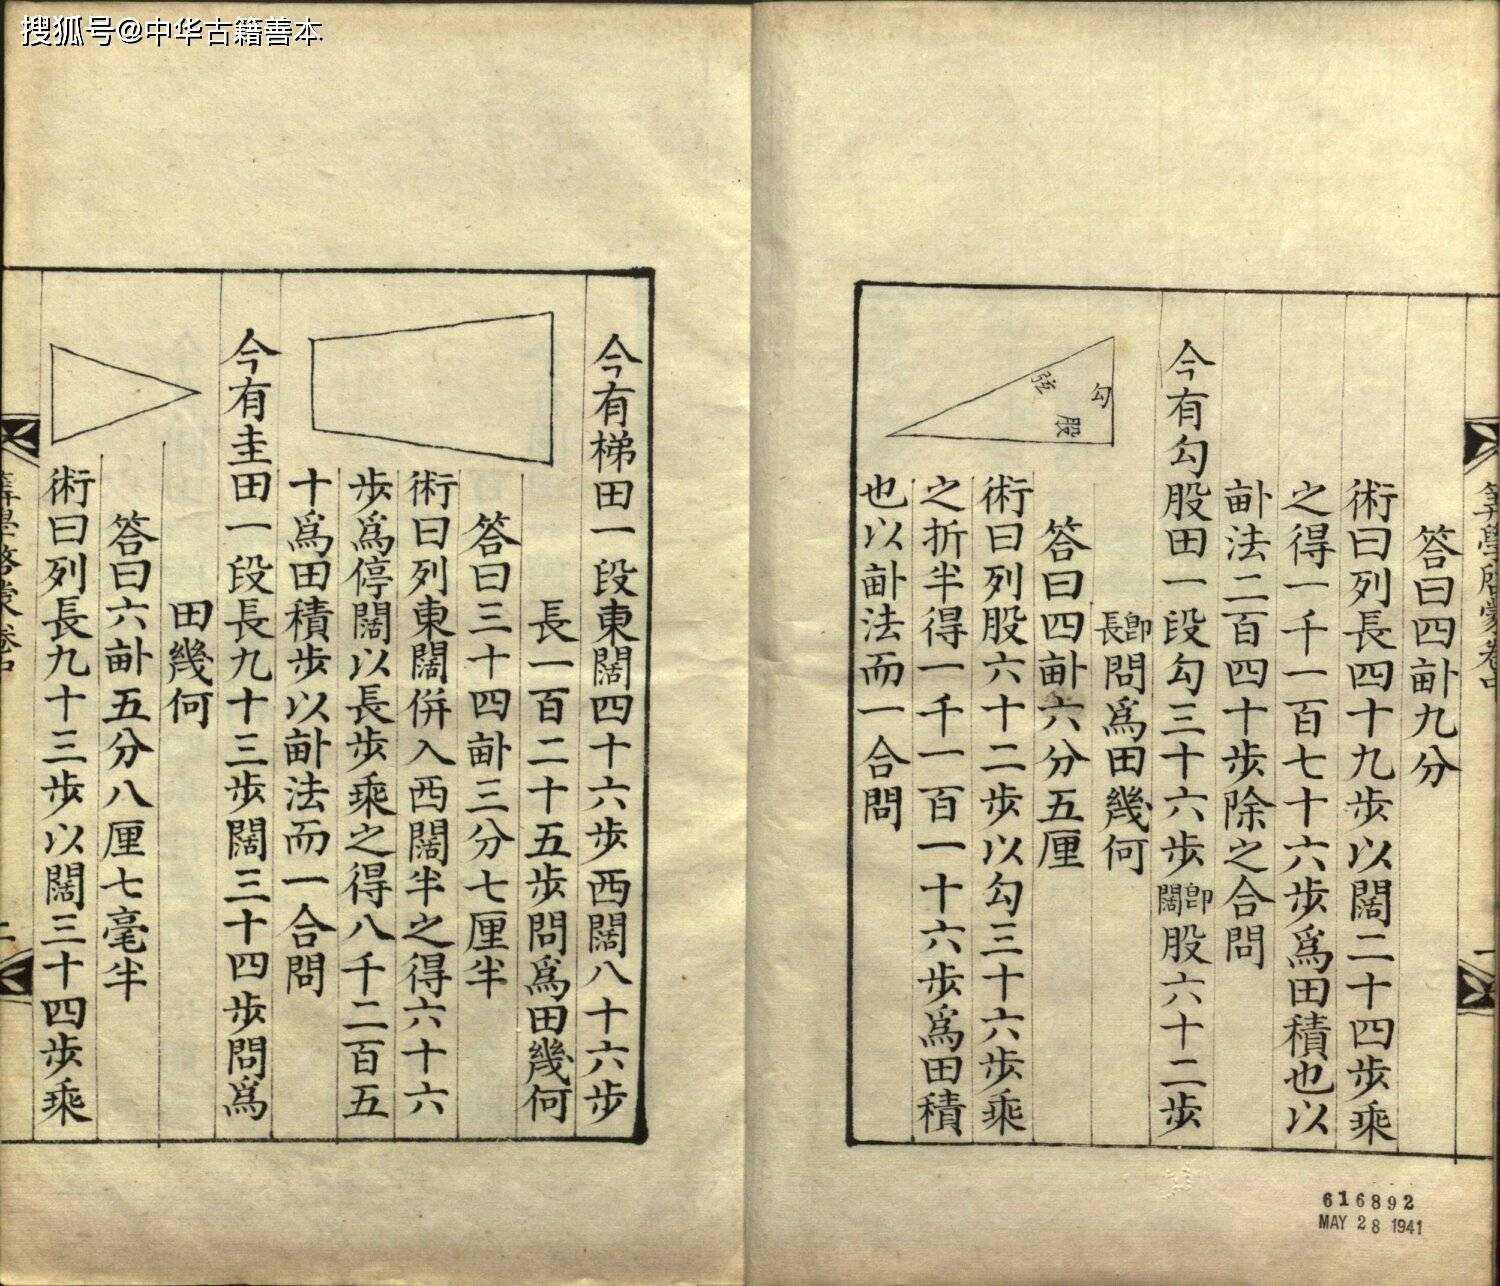 搜狐号@中华古籍善本
筭學啓蒙卷中
一
答曰四畝九分
術曰列長四十九步以闊二十四步乘
之得一千一百七十六步爲田積也以
畝法二百四十步除之合問
今有勾股田一段勾三十六步即闊股六十二步
即長問爲田幾何
答曰四畝六分五厘
術曰列股六十二步以勾三十六步乘
之折半得一千一百一十六步爲田積
也以畝法而一合問
勾
股
弦
今有梯田一段東闊四十六步西闊八十六步
長一百二十五步問爲田幾何
答曰三十四畝三分七厘半
術曰列東闊併入西闊半之得六十六
步爲停闊以長步乘之得八千二百五
十爲田積步以畝法而一合問
今有圭田一段長九十三步闊三十四步問爲
田幾何
答曰六畝五分八厘七毫半
術曰列長九十三步以闊三十四步乘
筭學啓蒙卷中
二
616892
MAY 28 1941